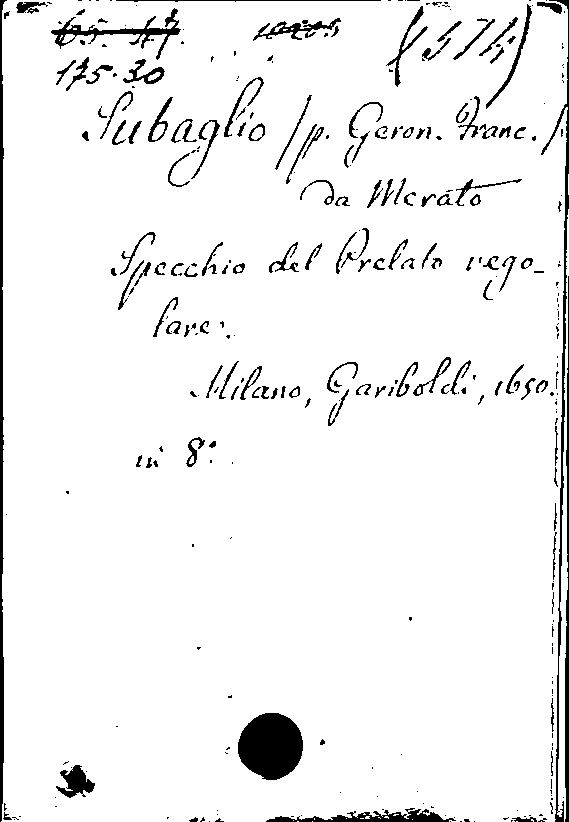 65. 47. (1574)
175.30
Subaglio /p. Geron. Franc./
da Merato
Specchio del Prelato rego-
lare.
Milano, Gariboldi, 1650.
in 8°